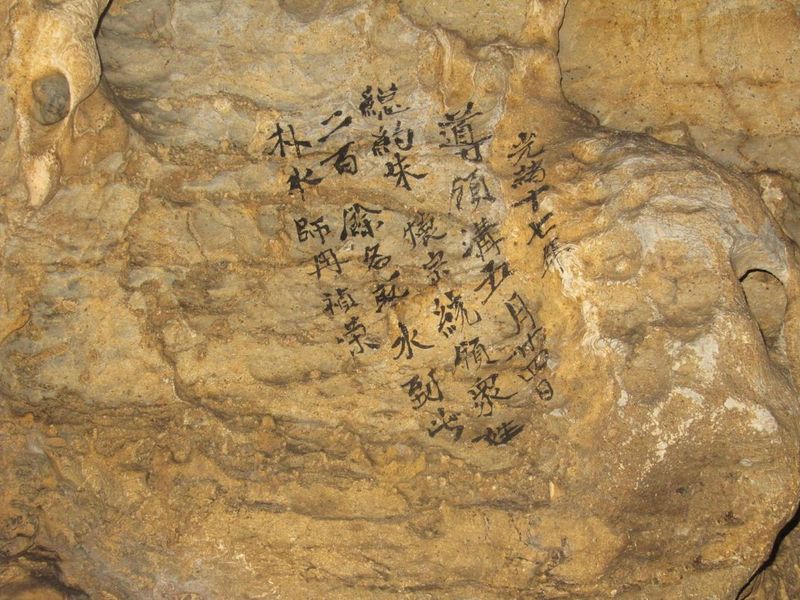 光緒十七年
導頭溝五月廿四日
總約朱懷宗統領眾姓
二百餘名取水到此
朴水師冉禎榮